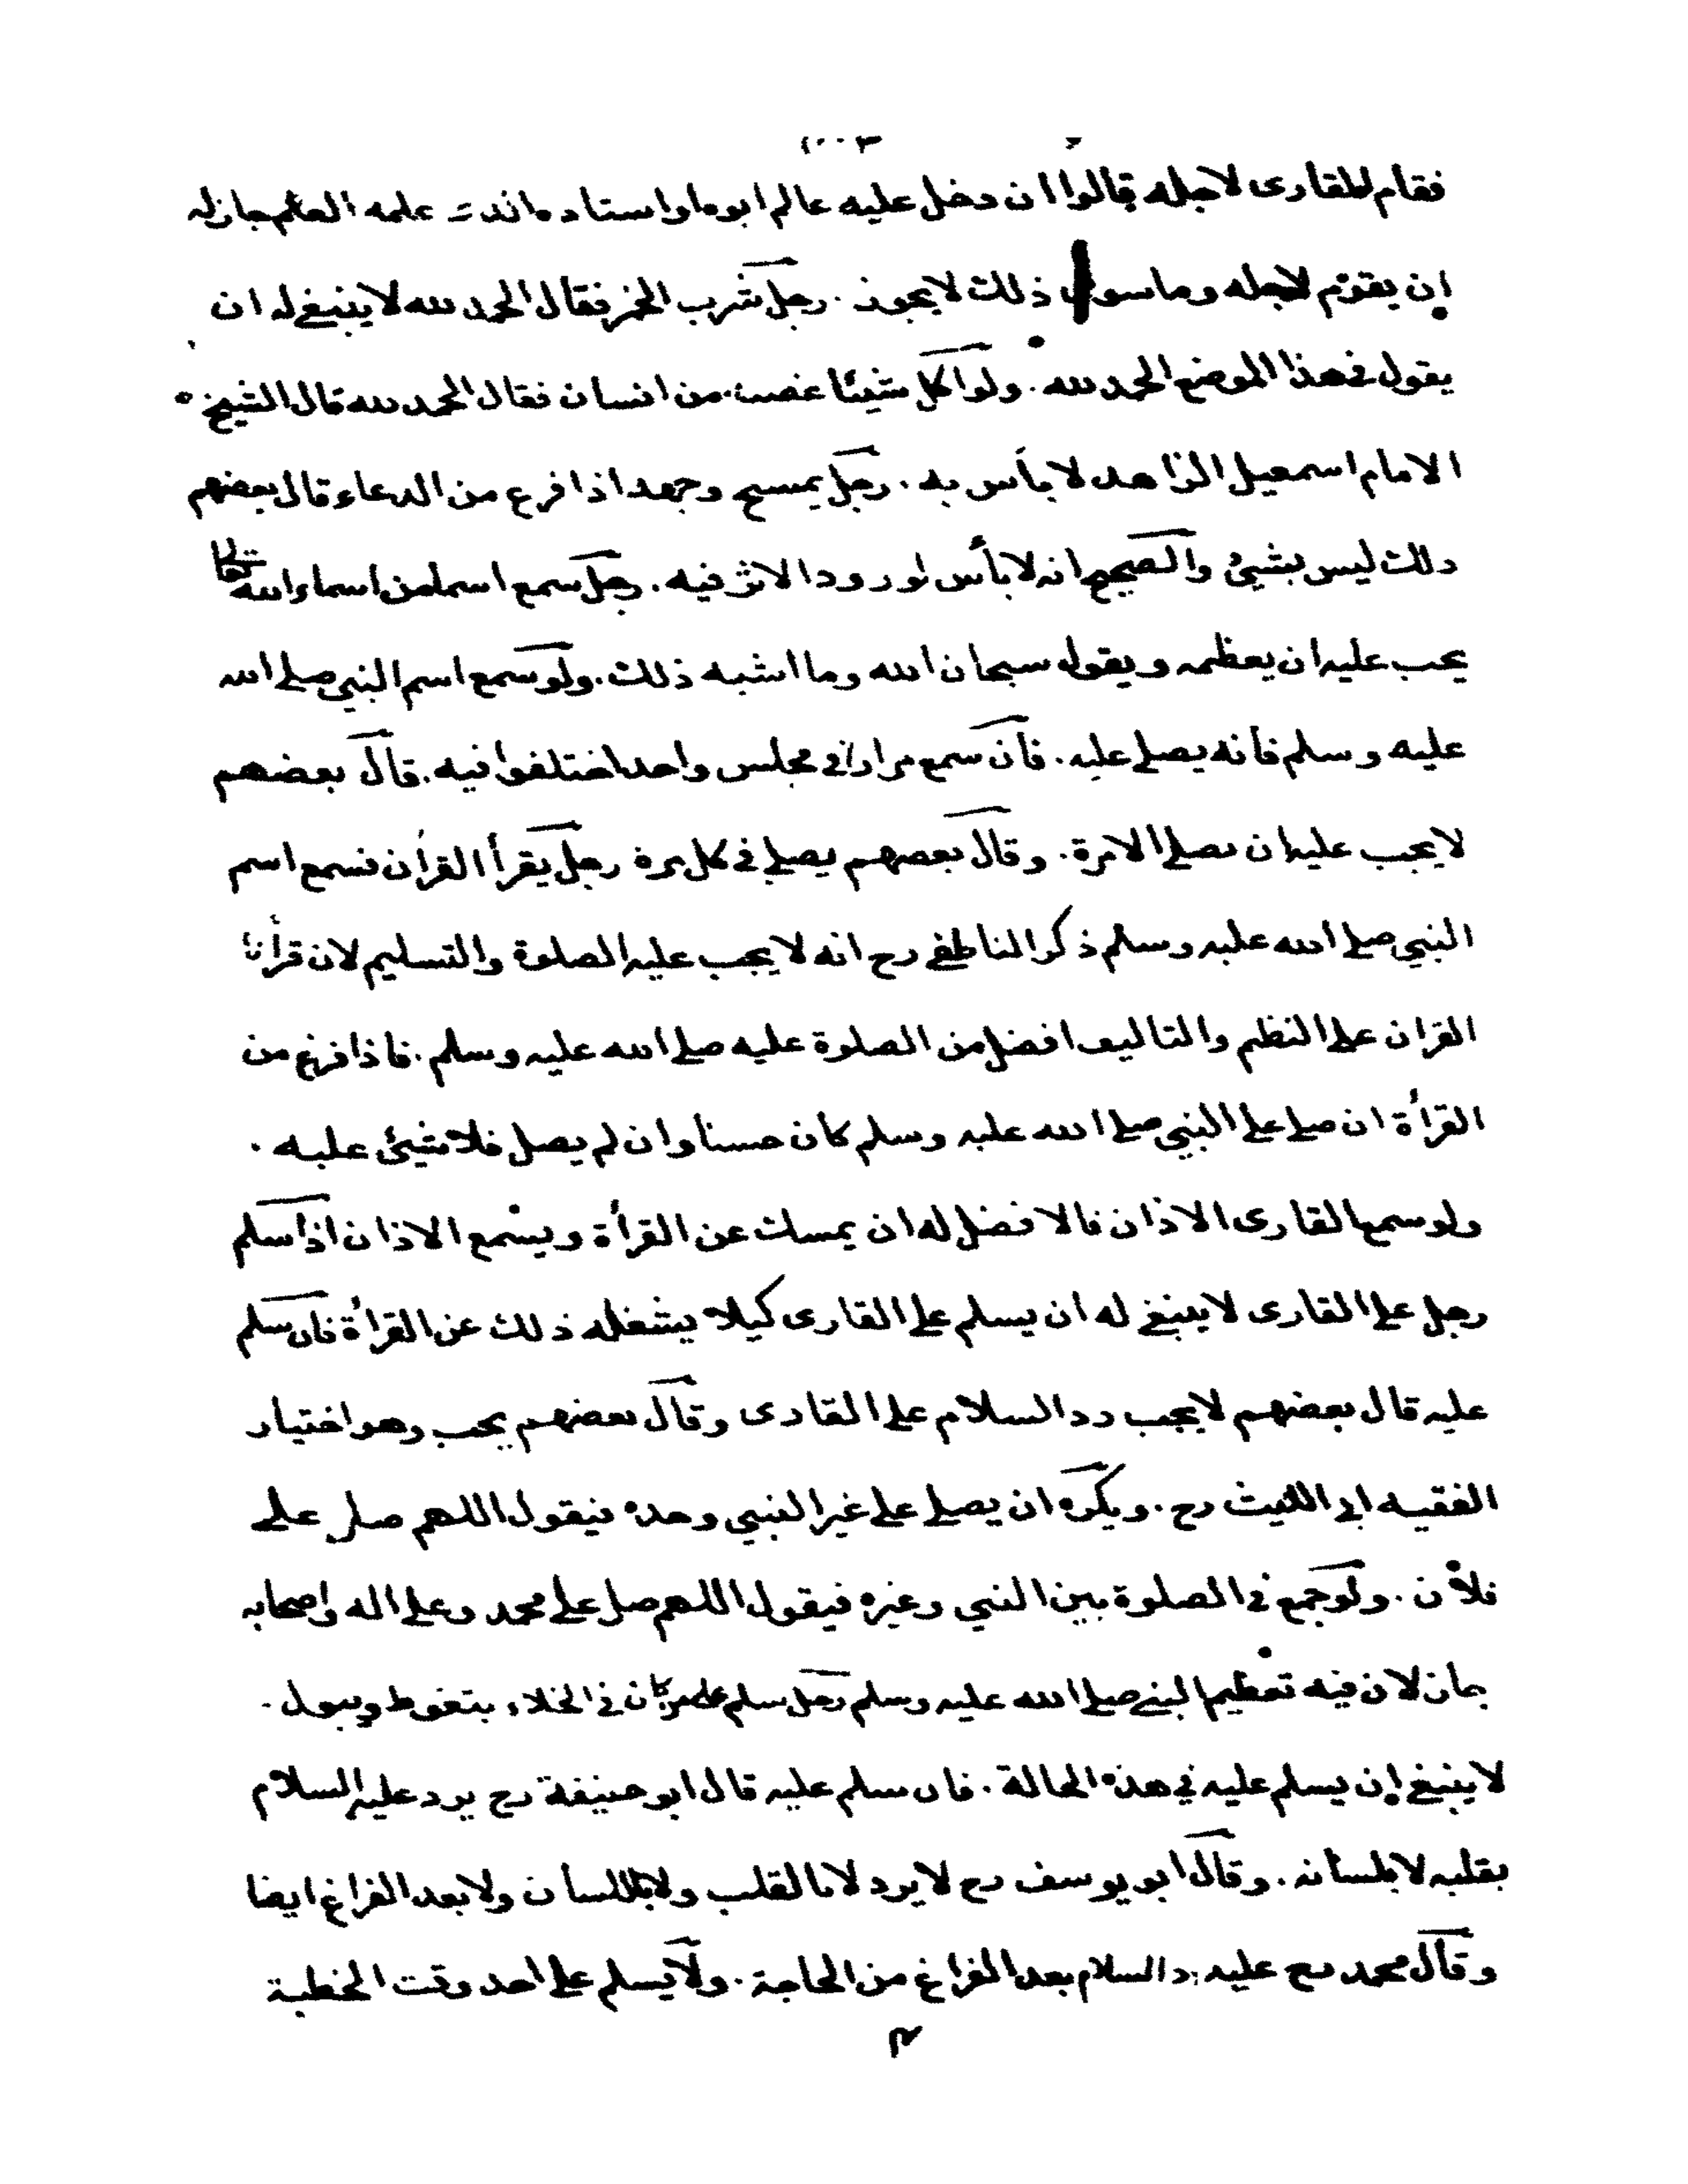 فقام القارى لاجله قالوا ان دخل عليه عالم ابوه او استاده الذى علمه العلم جاز له
ان يقوم لاجله وما سوى ذلك لا يجوز . رجل شرب الخمر فقال الحمد لله لا ينبغى له ان
يقول فى هذا الموضع الحمد لله . ولو اكل شيئا غصبه من انسان فقال الحمد لله قال الشيخ
الامام اسمعيل الزاهد لا بأس به . رجل يمسح وجهه اذا فرغ من الدعاء قال بعضهم
ذلك ليس بشيئ والصحيح انه لا بأس لورود الاثر فيه . رجل سمع اسما من اسماء الله تعالى
يجب عليه ان يعظمه ويقول سبحان الله وما اشبه ذلك . ولو سمع اسم النبى صلى الله
عليه وسلم فأنه يصلى عليه . فأن سمع مرارا فى مجلس واحد اختلفوا فيه . قال بعضهم
لا يجب عليه ان يصلى الا مرة . وقال بعضهم يصلى فى كل مرة رجل يقرأ القرأن فسمع اسم
النبي صلى الله عليه وسلم ذكر الناطفى رح انه لا يجب عليه الصلوة والتسليم لان قرأة
القران على النظم والتاليف افضل من الصلوة عليه صلى الله عليه وسلم . فاذا فرغ من
القرأة ان صلى على النبي صلى الله عليه وسلم كان حسنا وان لم يصل فلا شيئ عليه .
ولو سمع القارى الاذان فالافضل له ان يمسك عن القرأة ويسمع الاذان اذا سلم
رجل على القارى لا ينبغى له ان يسلم على القارى كيلا يشغله ذلك عن القرأة فان سلم
عليه قال بعضهم لا يجب رد السلام على القارى وقال بعضهم يجب وهو اختيار
الفقيه ابى الليث رح . ويكره ان يصلى على غير النبي وحده فيقول اللهم صل على
فلان . ولو جمع فى الصلوة بين النبي وغيره فيقول اللهم صل على محمد وعلى اله واصحابه
جاز لان فيه تعظيم النبى صلى الله عليه وسلم رجل سلم على من كان فى الخلاء يتغوط ويبول .
لا ينبغى ان يسلم عليه فى هذه الحالة . فان سلم عليه قال ابو حنيفة رح يرد عليه السلام
بقلبه لا بلسانه . وقال ابو يوسف رح لا يرد لا بالقلب ولا باللسان ولا بعد الفراغ ايضا
وقال محمد رح عليه رد السلام بعد الفراغ من الحاجة . ولا يسلم على احد وقت الخطبة